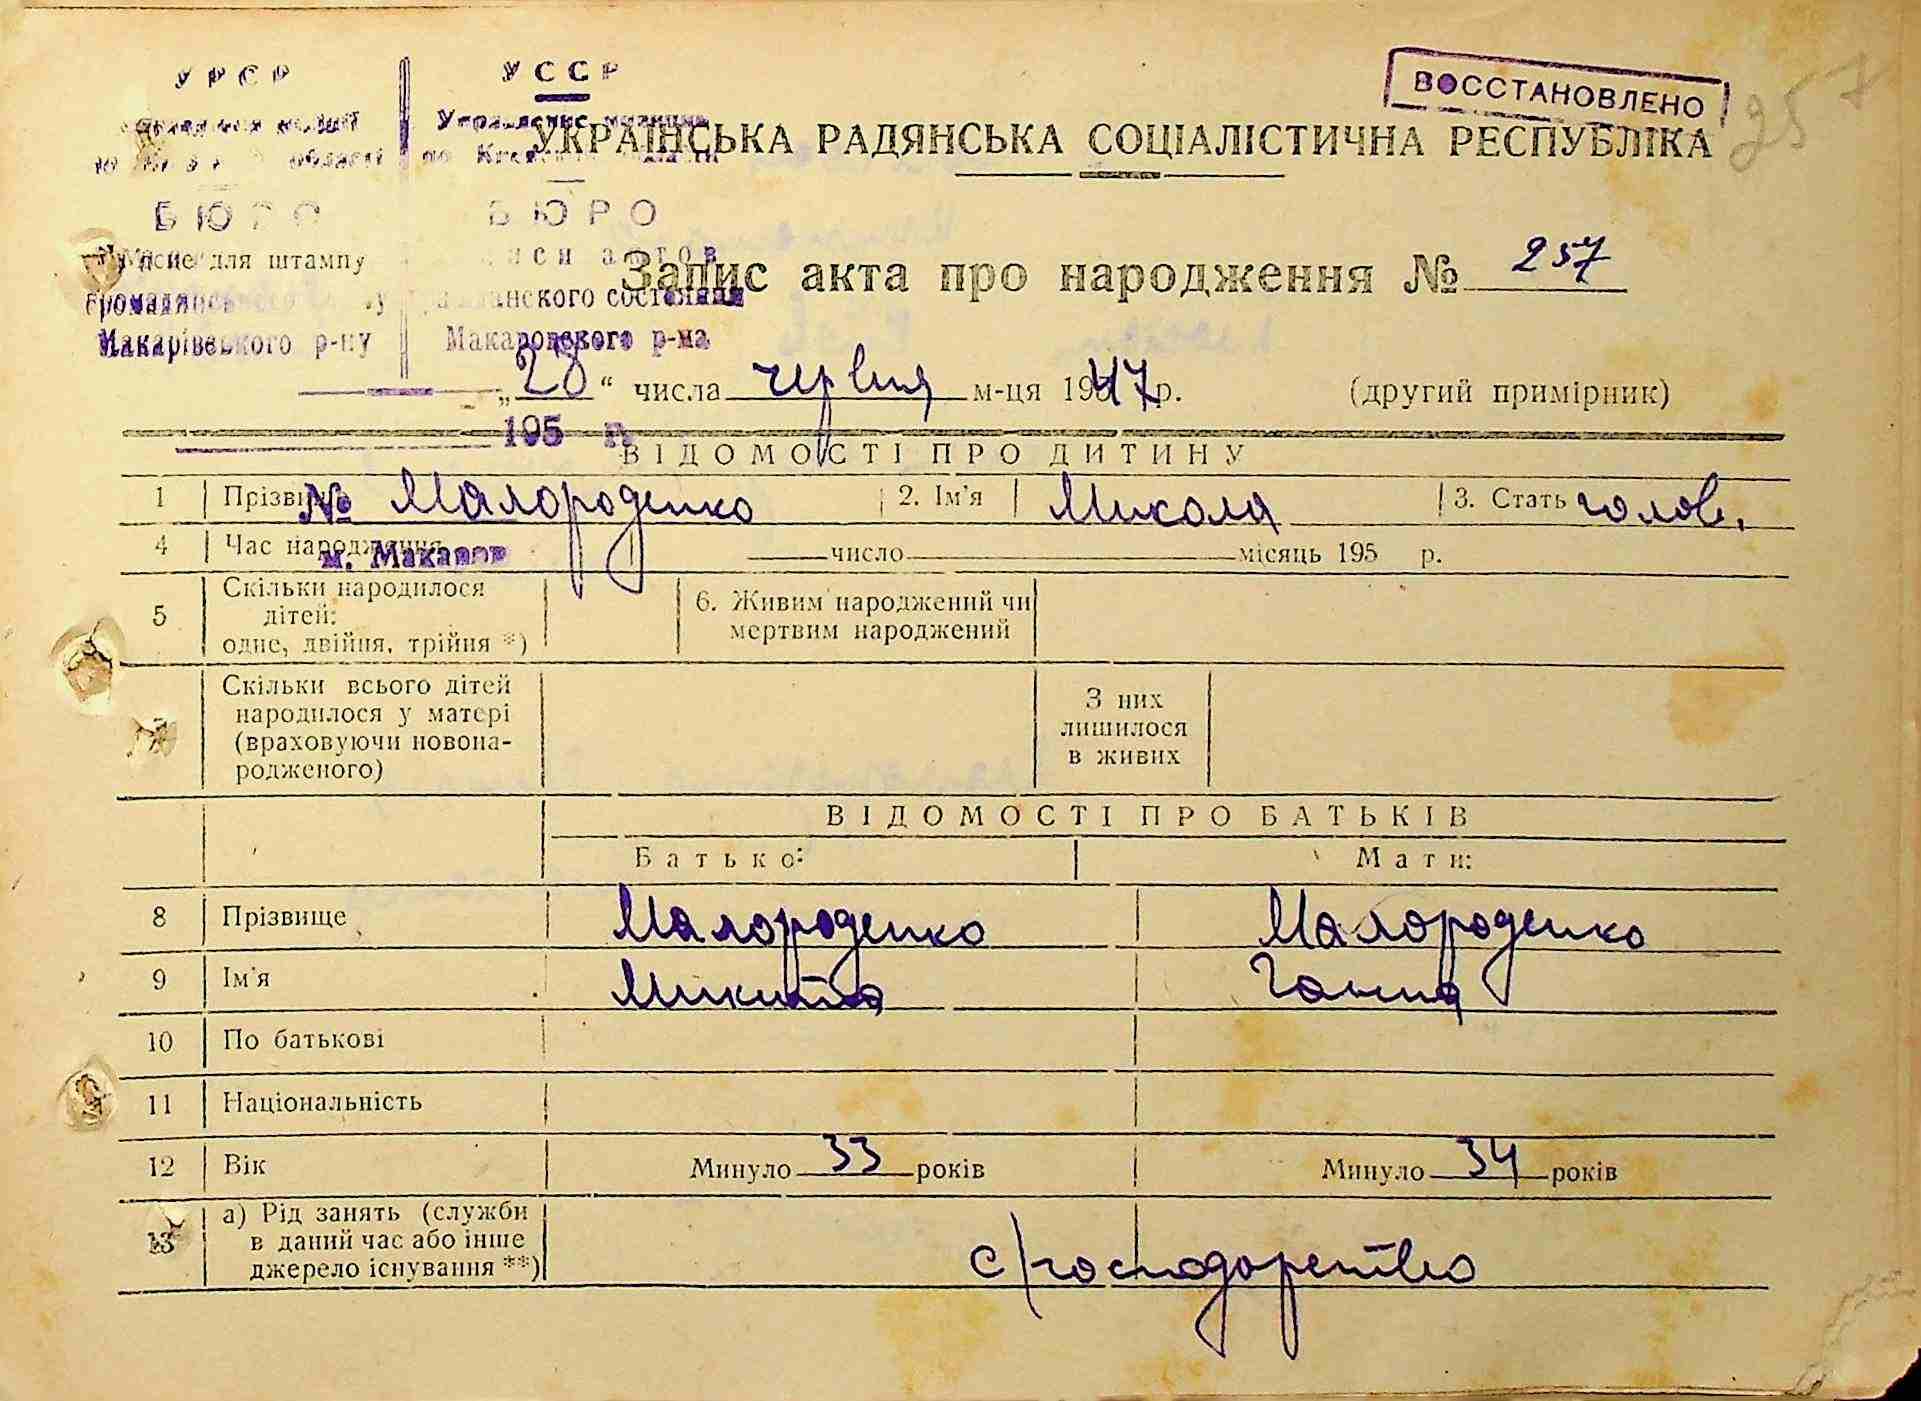 УРСР УССР
ВОССТАНОВЛЕНО
257
Управление милиции
УКРАЇНСЬКА РАДЯНСЬКА СОЦІАЛІСТИЧНА РЕСПУБЛІКА
області по
БЮРО БЮРО
Місце для штампу актов
Запис акта про народження № 257
гражданского состояния
Макарівського р-ну Макаровского р-на
„28“ числа червня м-ця 1947 р. (другий примірник)
195 г.
ВІДОМОСТІ ПРО ДИТИНУ
1 Прізвище Малороденко 2. Ім'я Микола 3. Стать чолов.
№
4 Час народження число місяць 195 р.
м. Макаров
5 Скільки народилося дітей: одне, двійня, трійня *) 6. Живим народжений чи мертвим народжений
7 Скільки всього дітей народилося у матері (враховуючи новонародженого) З них лишилося в живих
ВІДОМОСТІ ПРО БАТЬКІВ
Батько: Мати:
8 Прізвище Малороденко Малороденко
9 Ім'я Микита Ганна
10 По батькові
11 Національність
12 Вік Минуло 33 років Минуло 34 років
13 а) Рід занять (служби в даний час або інше джерело існування **) с/господарство